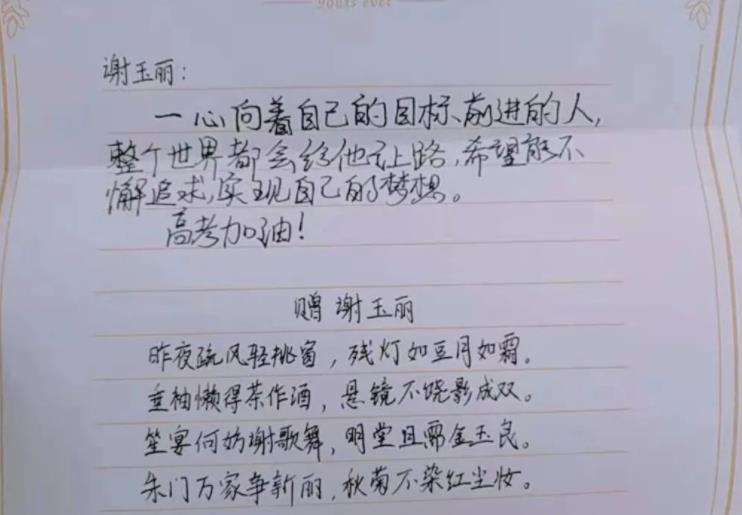 yours ever
谢玉丽:
一心向着自己的目标前进的人,
整个世界都会给他让路,希望能不
懈追求,实现自己的梦想。
高考加油!
赠 谢玉丽
昨夜疏风轻挑窗,残灯如豆月如霜。
垂袖懒得茶作酒,悬镜不饶影成双。
笙宴何妨谢歌舞,明堂且需金玉良。
朱门万家争新丽,秋菊不染红尘妆。